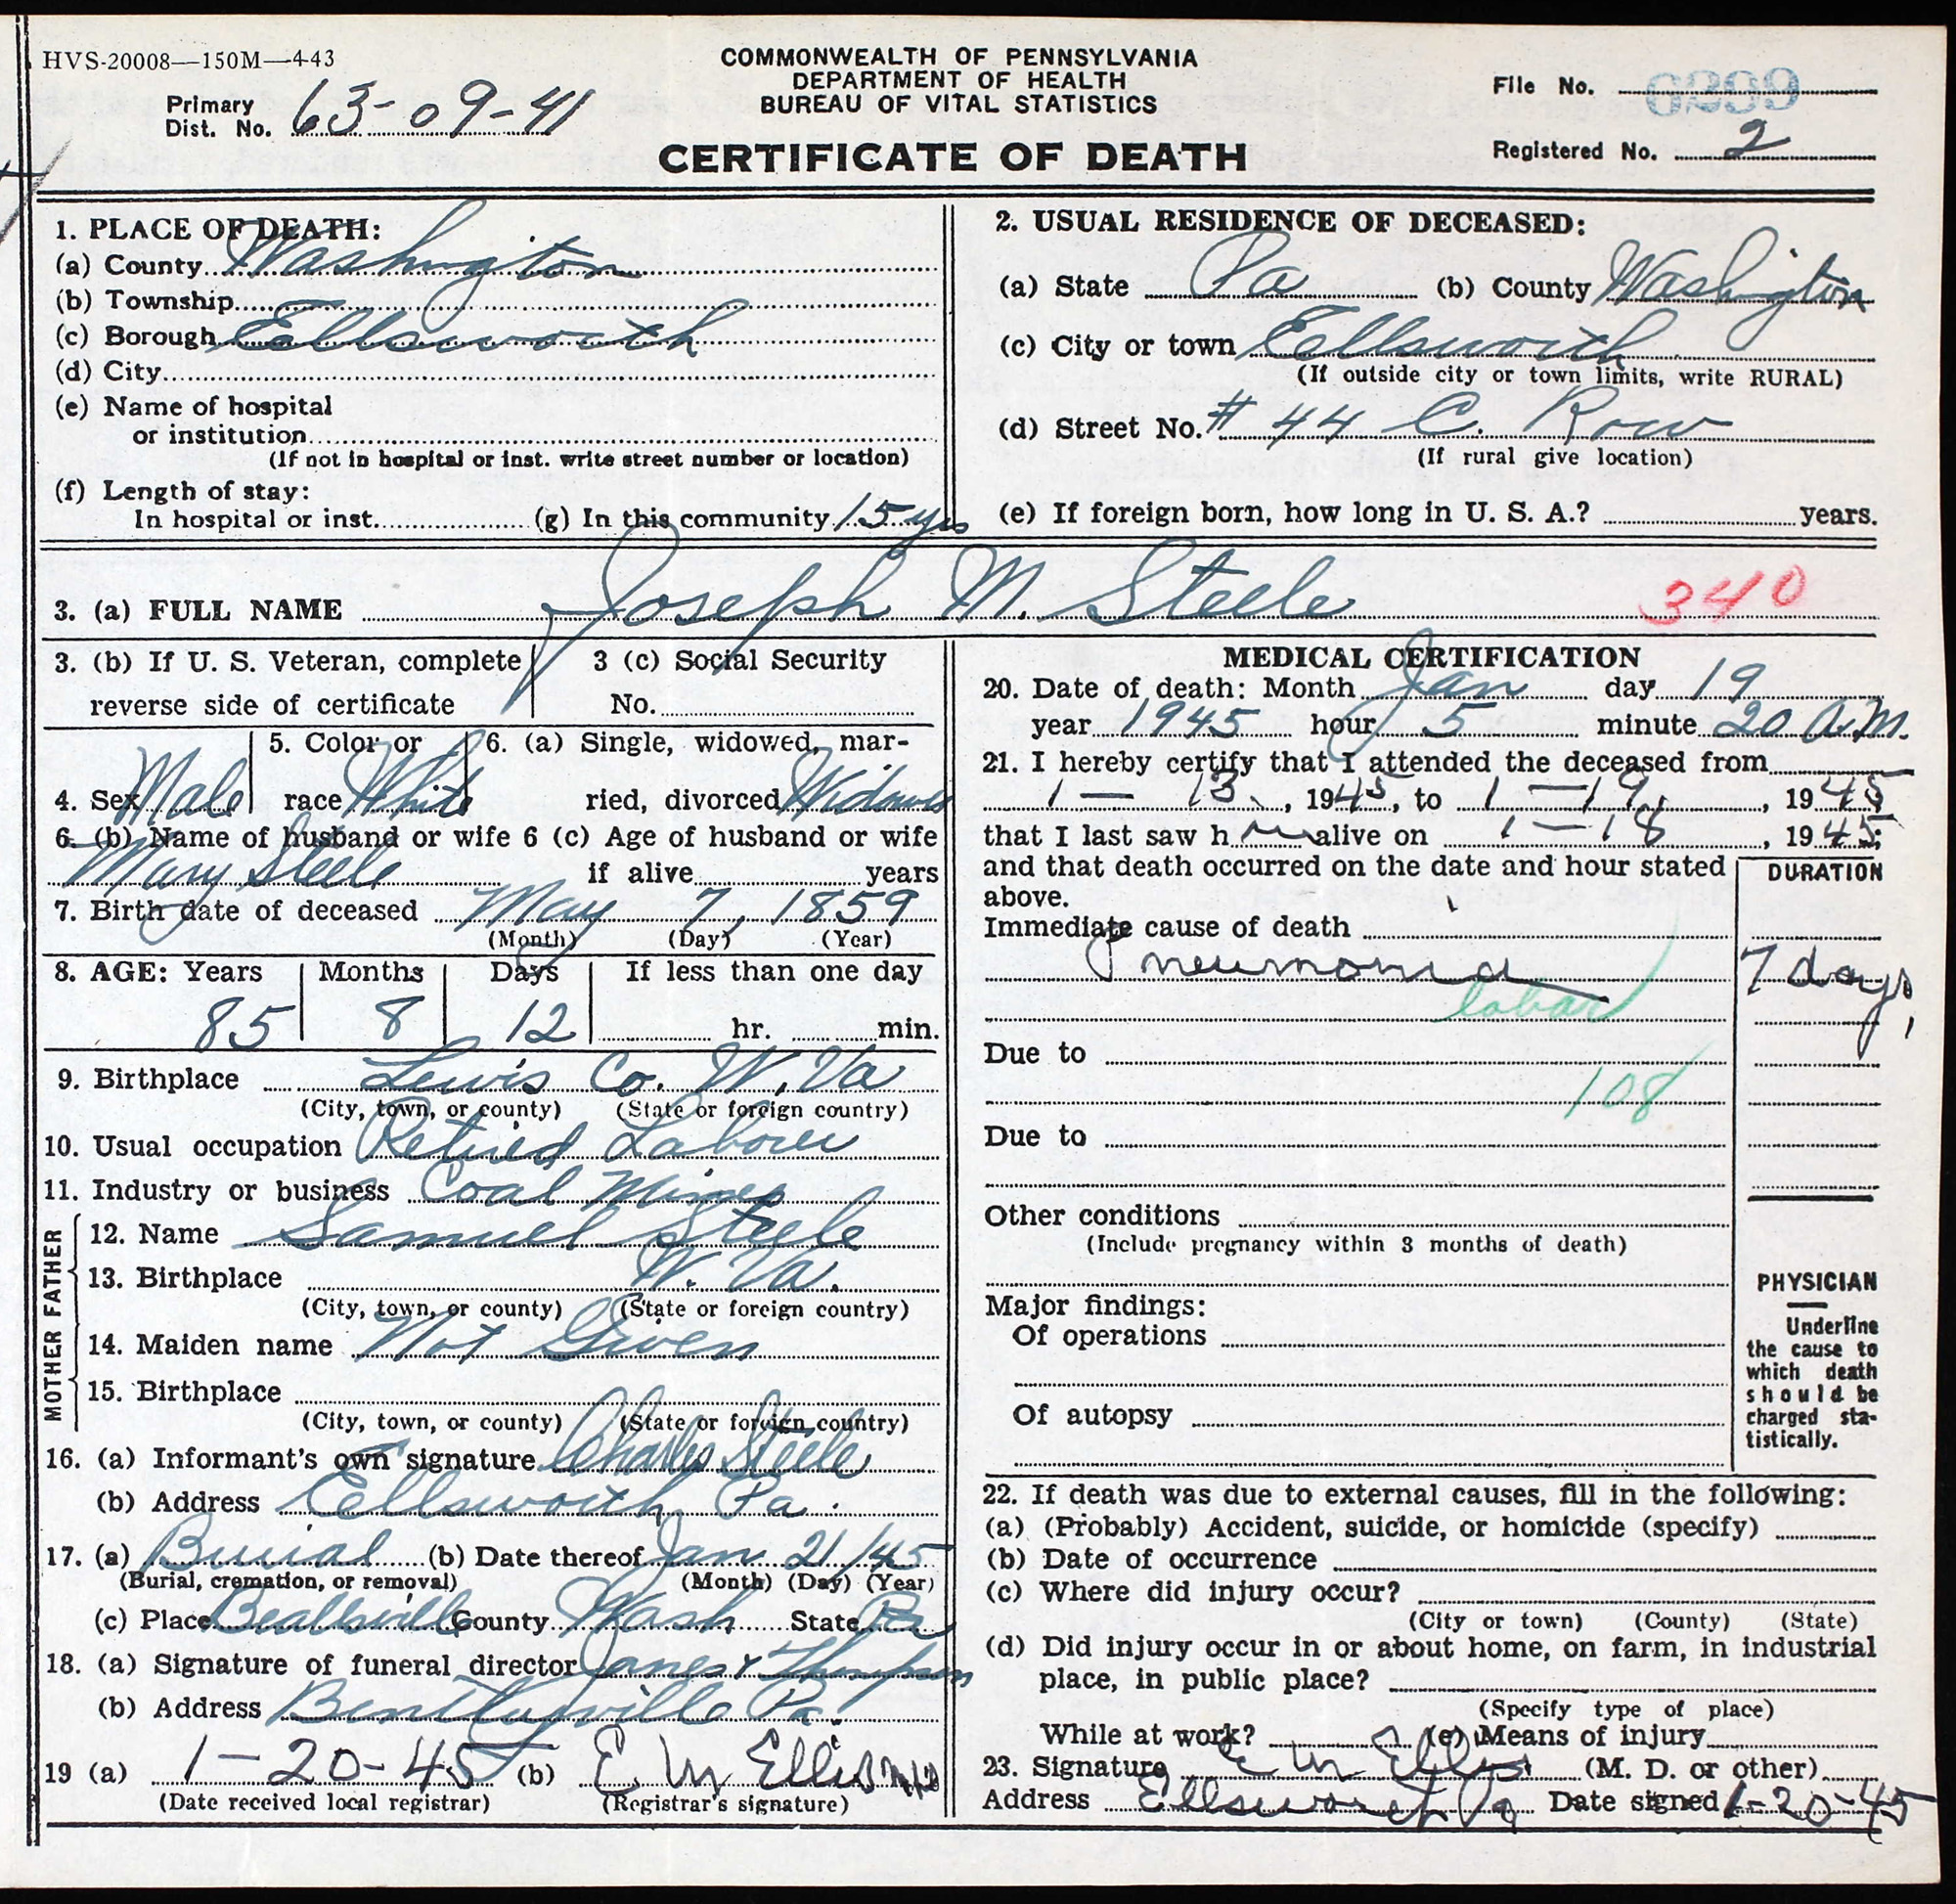 HVS-20008—150M—4-43
COMMONWEALTH OF PENNSYLVANIA
DEPARTMENT OF HEALTH
BUREAU OF VITAL STATISTICS
CERTIFICATE OF DEATH
Primary Dist. No. 63-09-41
File No. 6399
Registered No. 2
1. PLACE OF DEATH:
(a) County Washington
(b) Township
(c) Borough Ellsworth
(d) City
(e) Name of hospital
or institution
(If not in hospital or inst. write street number or location)
(f) Length of stay:
In hospital or inst. (g) In this community 15 yrs
2. USUAL RESIDENCE OF DECEASED:
(a) State Pa (b) County Washington
(c) City or town Ellsworth
(If outside city or town limits, write RURAL)
(d) Street No. # 44 C. Row
(If rural give location)
(e) If foreign born, how long in U. S. A.? years.
3. (a) FULL NAME Joseph M. Steele 340
3. (b) If U. S. Veteran, complete
reverse side of certificate
3 (c) Social Security
No.
4. Sex Male
5. Color or
race White
6. (a) Single, widowed, mar-
ried, divorced
6. (b) Name of husband or wife
Mary Steele
6 (c) Age of husband or wife
if alive years
7. Birth date of deceased May 7, 1859
(Month) (Day) (Year)
8. AGE: Years Months Days If less than one day
85 8 12 hr. min.
9. Birthplace Lewis Co. W. Va
(City, town, or county) (State or foreign country)
10. Usual occupation Retired Laborer
11. Industry or business Coal Mines
FATHER
12. Name Samuel Steele
13. Birthplace W. Va.
(City, town, or county) (State or foreign country)
MOTHER
14. Maiden name Not Given
15. Birthplace
(City, town, or county) (State or foreign country)
16. (a) Informant's own signature Charles Steele
(b) Address Ellsworth, Pa.
17. (a) Burial (b) Date thereof Jan 21/45
(Burial, cremation, or removal) (Month) (Day) (Year)
(c) Place Beallsville County Wash. State Pa
18. (a) Signature of funeral director & Thompson
(b) Address Bentleyville Pa.
19 (a) 1-20-45 (b) E M Ellis MD
(Date received local registrar) (Registrar's signature)
MEDICAL CERTIFICATION
20. Date of death: Month Jan day 19
year 1945 hour 5 minute 20 A.M.
21. I hereby certify that I attended the deceased from
1 - 13, 1945, to 1-19, 1945
that I last saw h alive on 1-18, 1945;
and that death occurred on the date and hour stated
above.
DURATION
Immediate cause of death
Pneumonia 7 days,
lobar
Due to
108
Due to
Other conditions
(Include pregnancy within 3 months of death)
Major findings:
Of operations
Of autopsy
PHYSICIAN
Underline
the cause to
which death
should be
charged sta-
tistically.
22. If death was due to external causes, fill in the following:
(a) (Probably) Accident, suicide, or homicide (specify)
(b) Date of occurrence
(c) Where did injury occur?
(City or town) (County) (State)
(d) Did injury occur in or about home, on farm, in industrial
place, in public place?
(Specify type of place)
While at work? (e) Means of injury
23. Signature E M Ellis (M. D. or other)
Address Ellsworth Pa Date signed 1-20-45